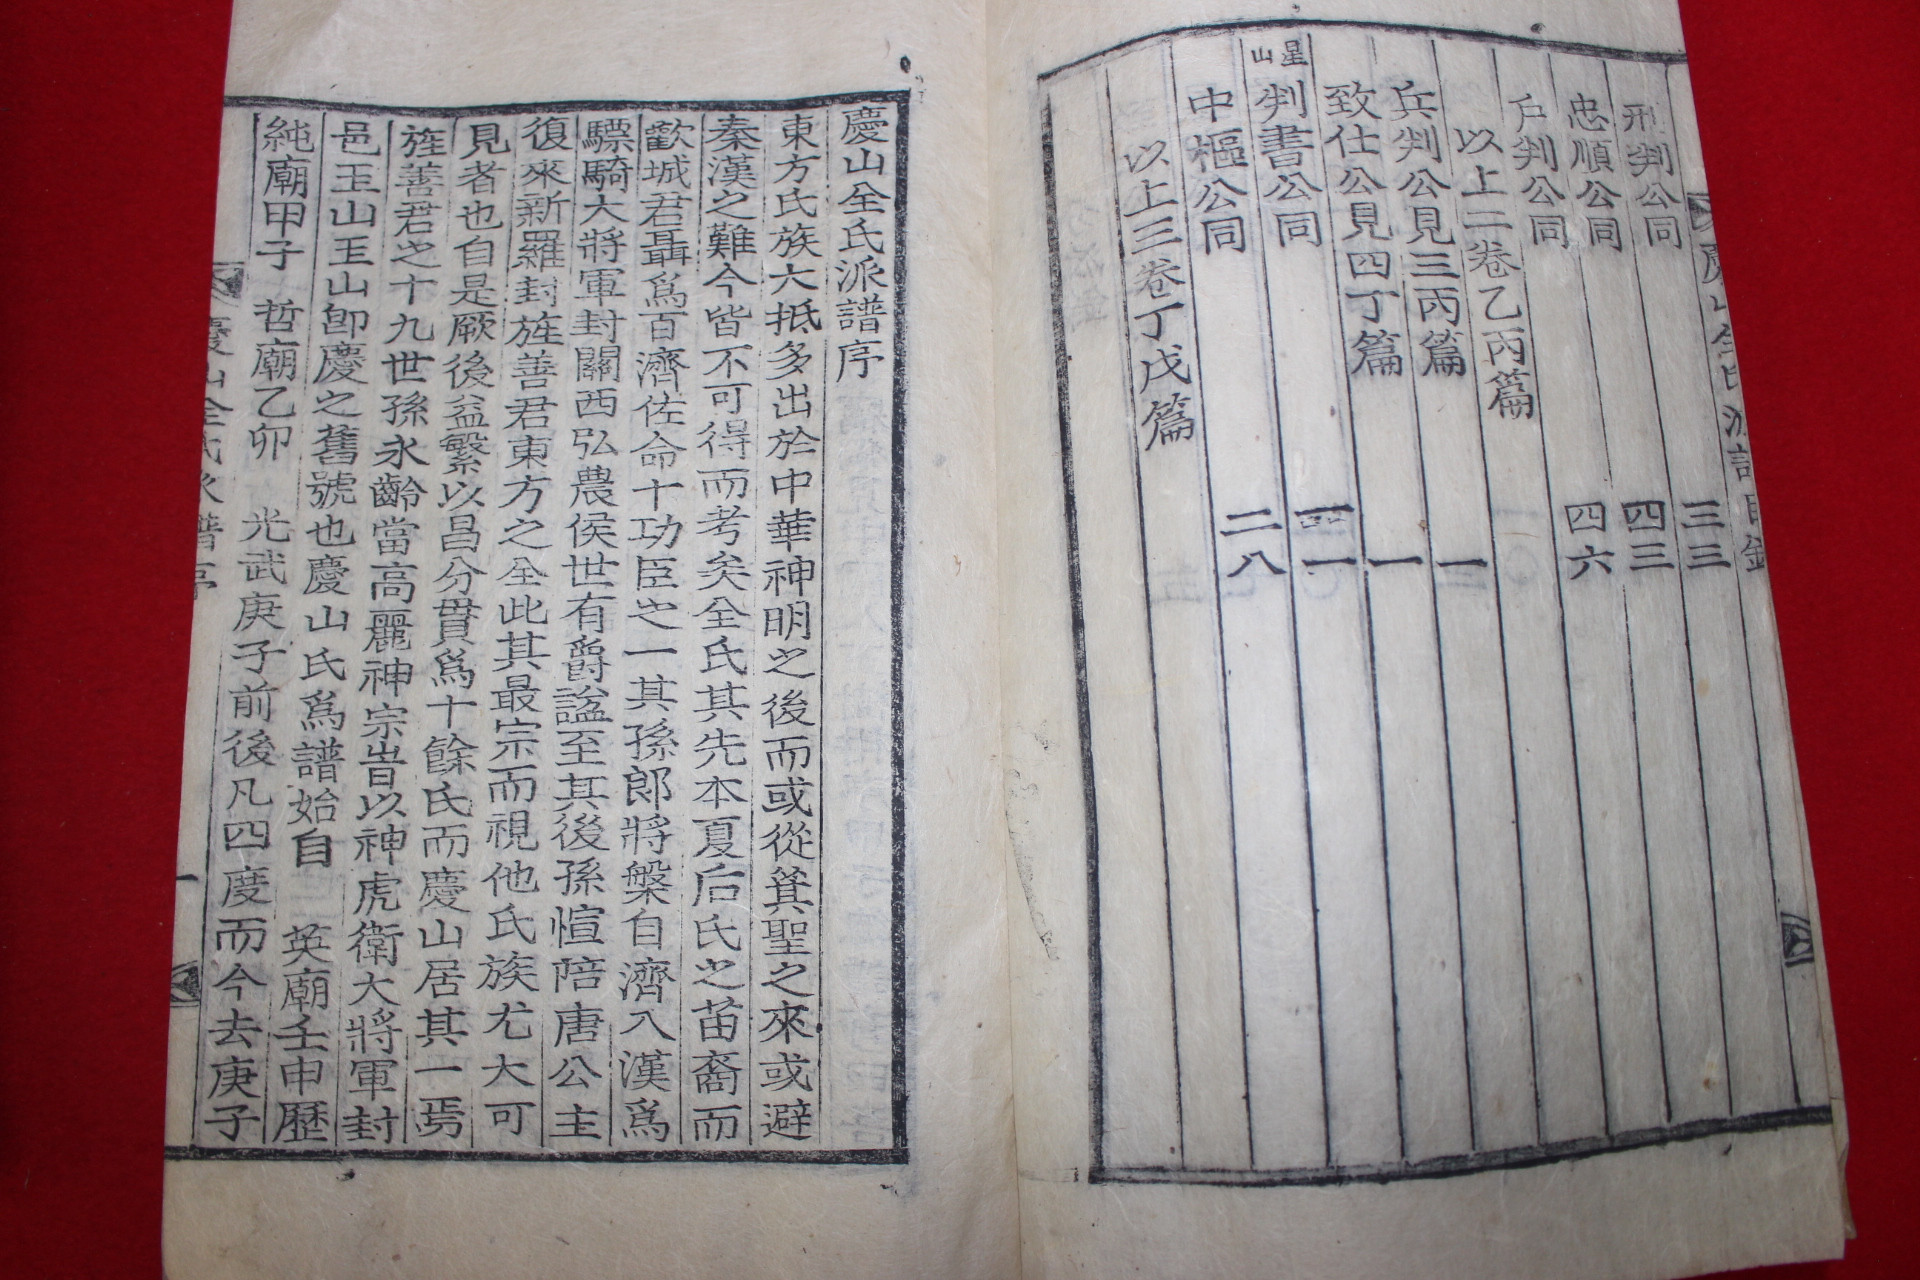 慶山全氏派譜目錄
三三
刑判公同 四三
忠順公同 四六
戶判公同
以上二卷乙丙篇
兵判公見三丙篇 一
致仕公見四丁篇 一
星山
判書公同 一一
中樞公同 二八
以上三卷丁戊篇
慶山全氏派譜序
東方氏族大抵多出於中華神明之後而或從箕聖之來或避
秦漢之難今皆不可得而考矣全氏其先本夏后氏之苗裔而
歡城君聶爲百濟佐命十功臣之一其孫郎將槃自濟入漢爲
驃騎大將軍封關西弘農侯世有爵謚至其後孫愃陪唐公主
復來新羅封旌善君東方之全此其最宗而視他氏族尤大可
見者也自是厥後益繁以昌分貫爲十餘氏而慶山居其一焉
旌善君之十九世孫永齡當高麗神宗旹以神虎衛大將軍封
邑玉山玉山卽慶之舊號也慶山氏爲譜始自 英廟壬申歷
純廟甲子 哲廟乙卯 光武庚子前後凡四度而今去庚子
慶山全氏派譜序 一